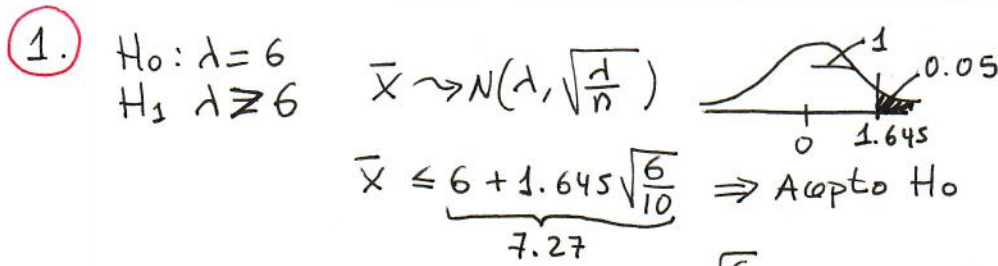 1. H₀: λ = 6
H₁ λ ≥ 6
X̄ ~> N(λ, √(λ/n))
1
0.05
0 1.645
X̄ ≤ 6 + 1.645 √(6/10) ⇒ Acepto H₀
7.27